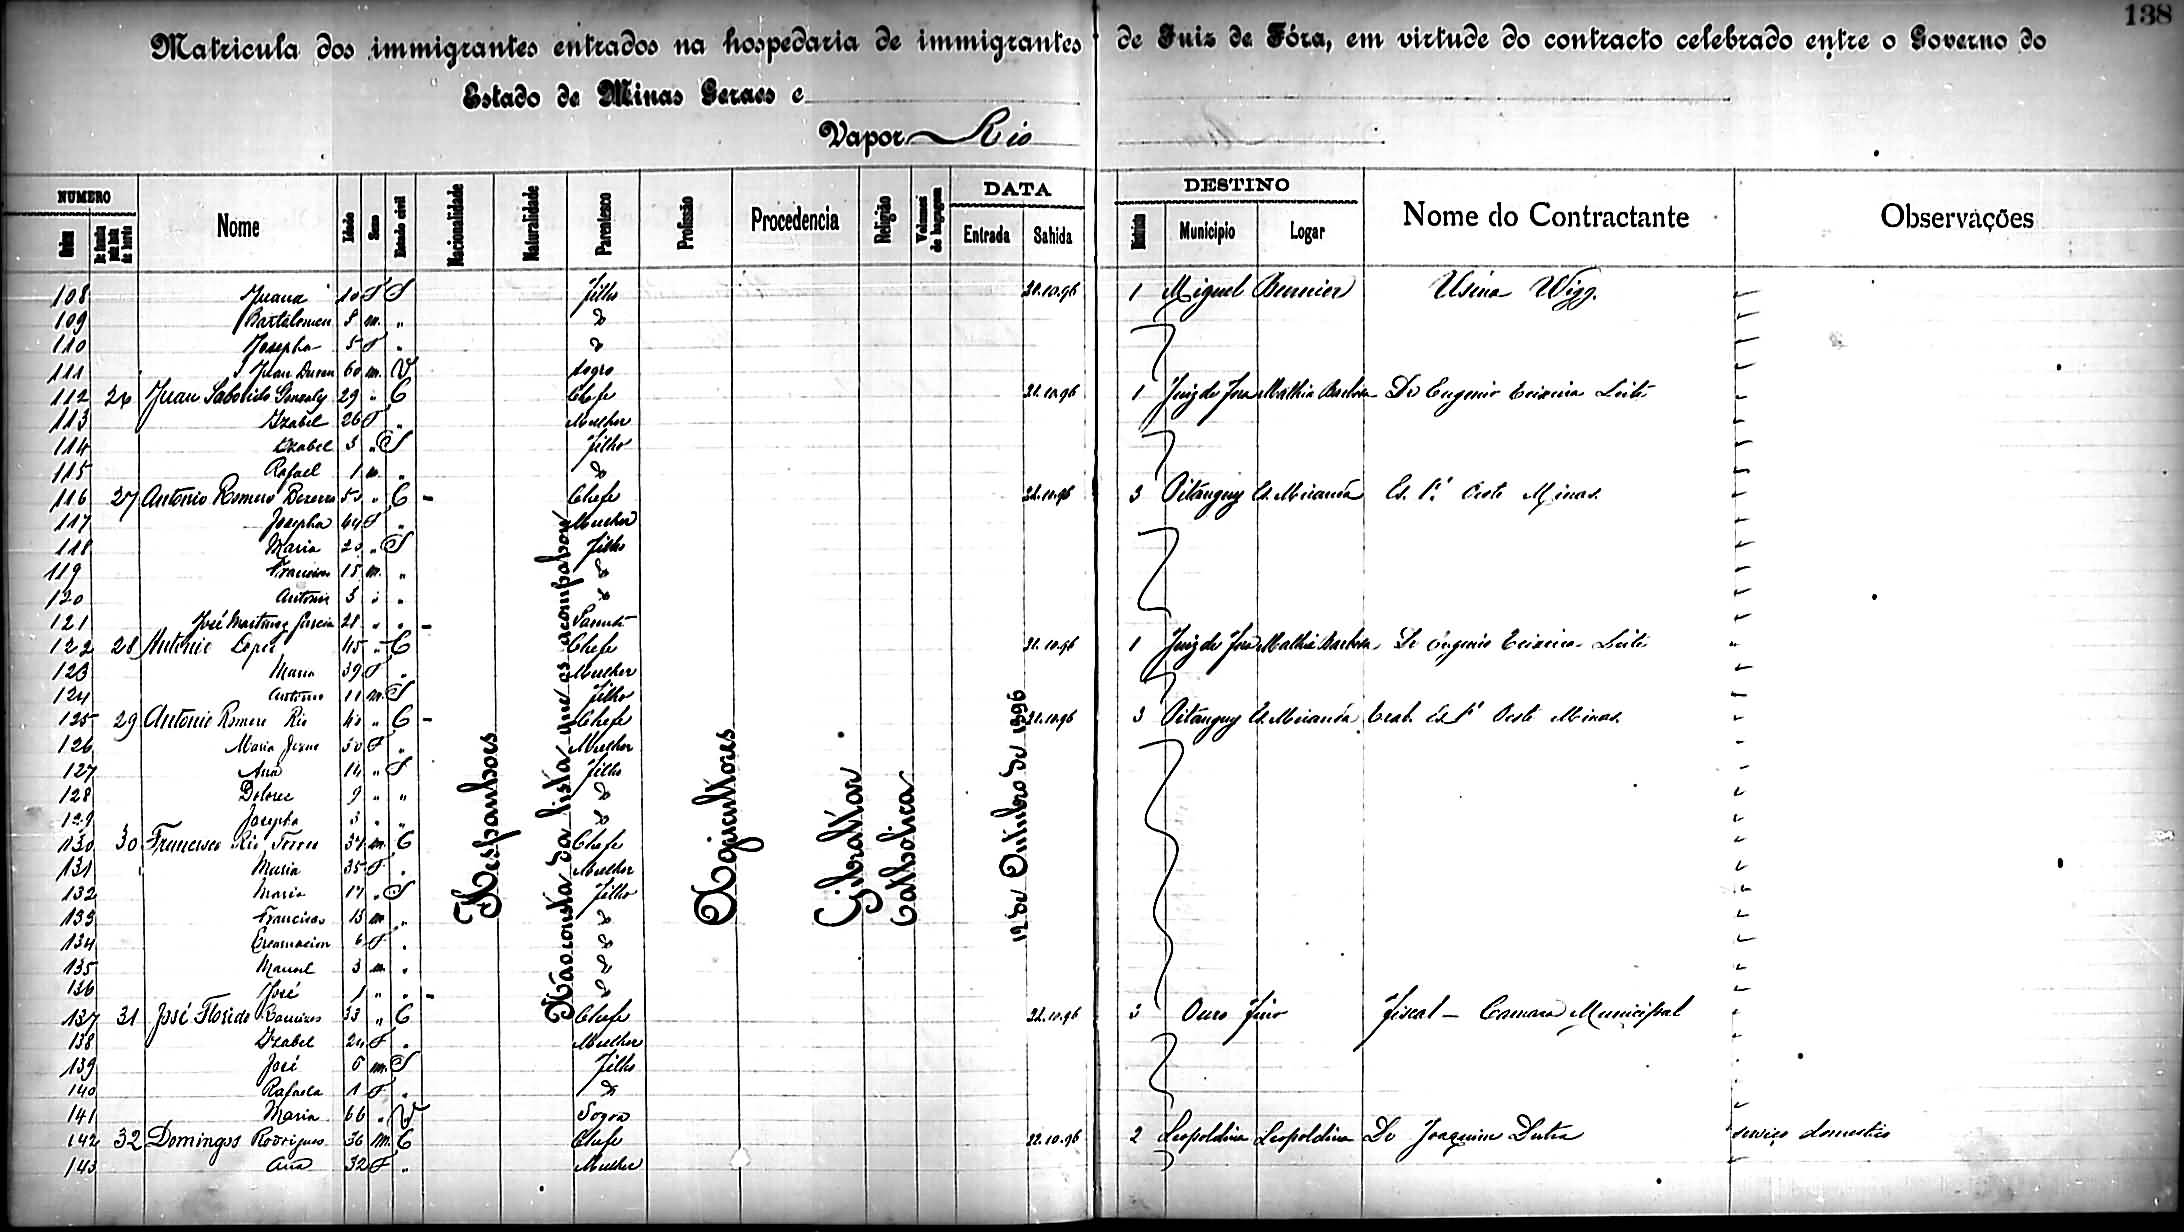 138
Matricula dos immigrantes entrados na hospedaria de immigrantes de Juiz de Fóra, em virtude do contracto celebrado entre o Governo do
Estado de Minas Geraes e
Vapor Rio
NUMERO Nome Idade Sexo Estado civil Nacionalidade Naturalidade Parentesco Profissão Procedencia Religião Volumes de bagagem DATA DESTINO Nome do Contractante Observações
Ordem De familia pela lista de bordo Entrada Sahida Districto Municipio Logar
Hespanhoes
Não consta da lista que os acompanhou
Agricultores
Gibraltar
Catholica
12 de Outubro de 1896
108 Juana 10 F S filho 21.10.96 1 Miguel Burnier Usina Wigg.
109 Bartolomeu 8 m. " do
110 Josepha 5 F " do
111 Juan Duran 60 m. V sogro
112 26 Juan Saborido Gonzalez 29 " C Chefe 21.10.96 1 Juiz de Fora Mathia Barbosa Dr Eugenio Teixeira Leite
113 Izabel 26 F " Mulher
114 Izabel 3 " S filho
115 Rafael 1 m. " do
116 27 Antonio Romero 50 " C - Chefe 22.10.96 3 Pitanguy Es. Miranda Es. Fo. Oeste Minas.
117 Josepha 44 F " Mulher
118 Maria 20 " S filho
119 Francisco 15 m. " do
120 Antonio 3 " " do
121 José Martinez Garcia 28 " " - Parente
122 28 Antonio Lopez 45 " C Chefe 21.10.96 1 Juiz de Fora Mathia Barbosa Dr Eugenio Teixeira Leite
123 Maria 39 F " Mulher
124 Antonio 11 m. S filho
125 29 Antonio Romero Rio 40 " C - Chefe 21.10.96 3 Pitanguy Es. Miranda Trab. Es. Fo. Oeste Minas.
126 Maria 30 F " Mulher
127 Ana 14 " S filho
128 Dolores 9 " " do
129 Josepha 3 " " do
130 30 Francisco Rio Torres 37 m. C Chefe
131 Maria 35 F " Mulher
132 Maria 17 " S filho
133 Francisco 13 m " do
134 Encarnacion 6 F " do
135 Manoel 3 m " do
136 José 1 " " - do
137 31 José Florido Ramires 33 " C Chefe 22.10.96 3 Ouro Fino Fiscal - Camara Municipal
138 Izabel 24 F " Mulher
139 José 6 m. S filho
140 Rafaela 1 F " do
141 Maria 66 " V Sogra
142 32 Domingos Rodrigues 36 m. C Chefe 22.10.96 2 Leopoldina Leopoldina Dr Joaquim Dutra serviço domestico
143 Ana 32 F " Mulher